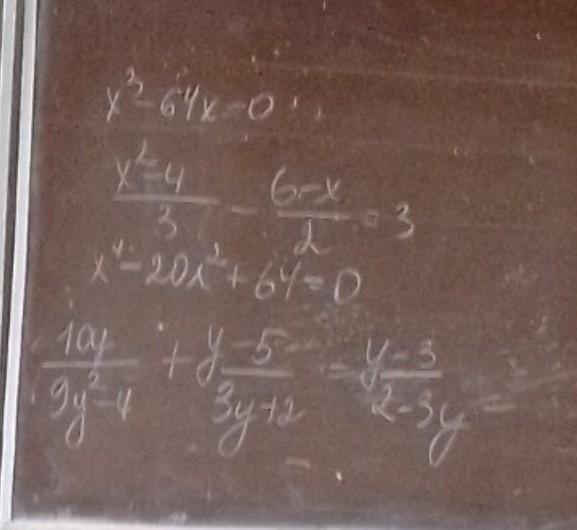 x³-64x=0
(x²-4)/3 - (6-x)/2 = 3
x⁴-20x²+64=0
10y/(9y²-4) + (y-5)/(3y+2) = (y-3)/(2-3y)